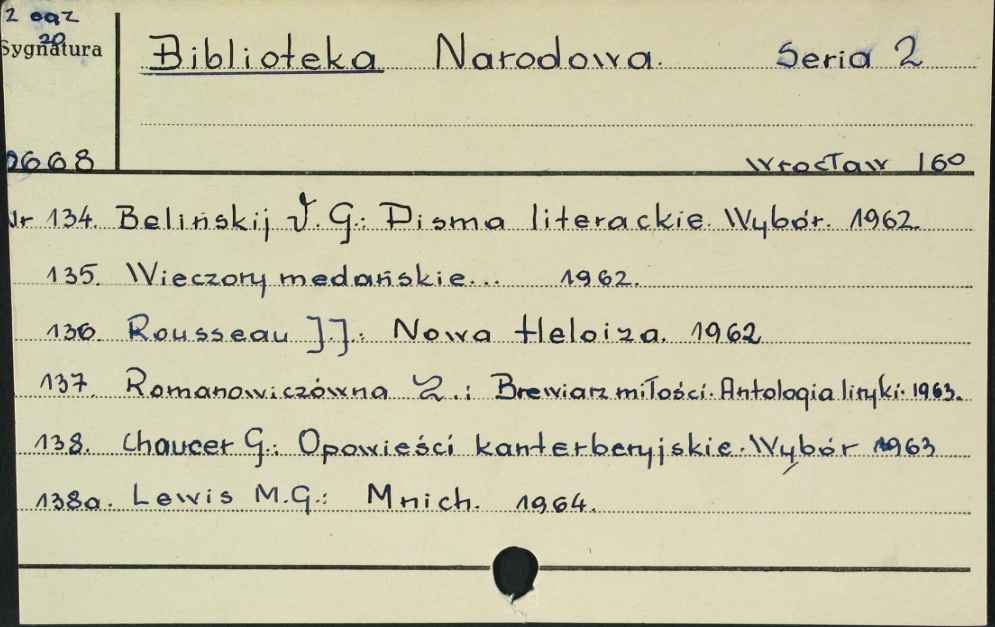 2 egz
20
Sygnatura
Biblioteka Narodowa. Seria 2
0668
Wrocław 160
Nr 134. Belinskij V. G.: Pisma literackie. Wybór. 1962.
135. Wieczory medańskie... 1962.
136. Rousseau J.J.: Nowa Heloiza. 1962
137. Romanowiczówna Z.: Brewiarz miłości. Antologia liryki. 1963.
138. Chaucer G.: Opowieści kanterberyjskie. Wybór 1963
138a. Lewis M.G.: Mnich. 1964.